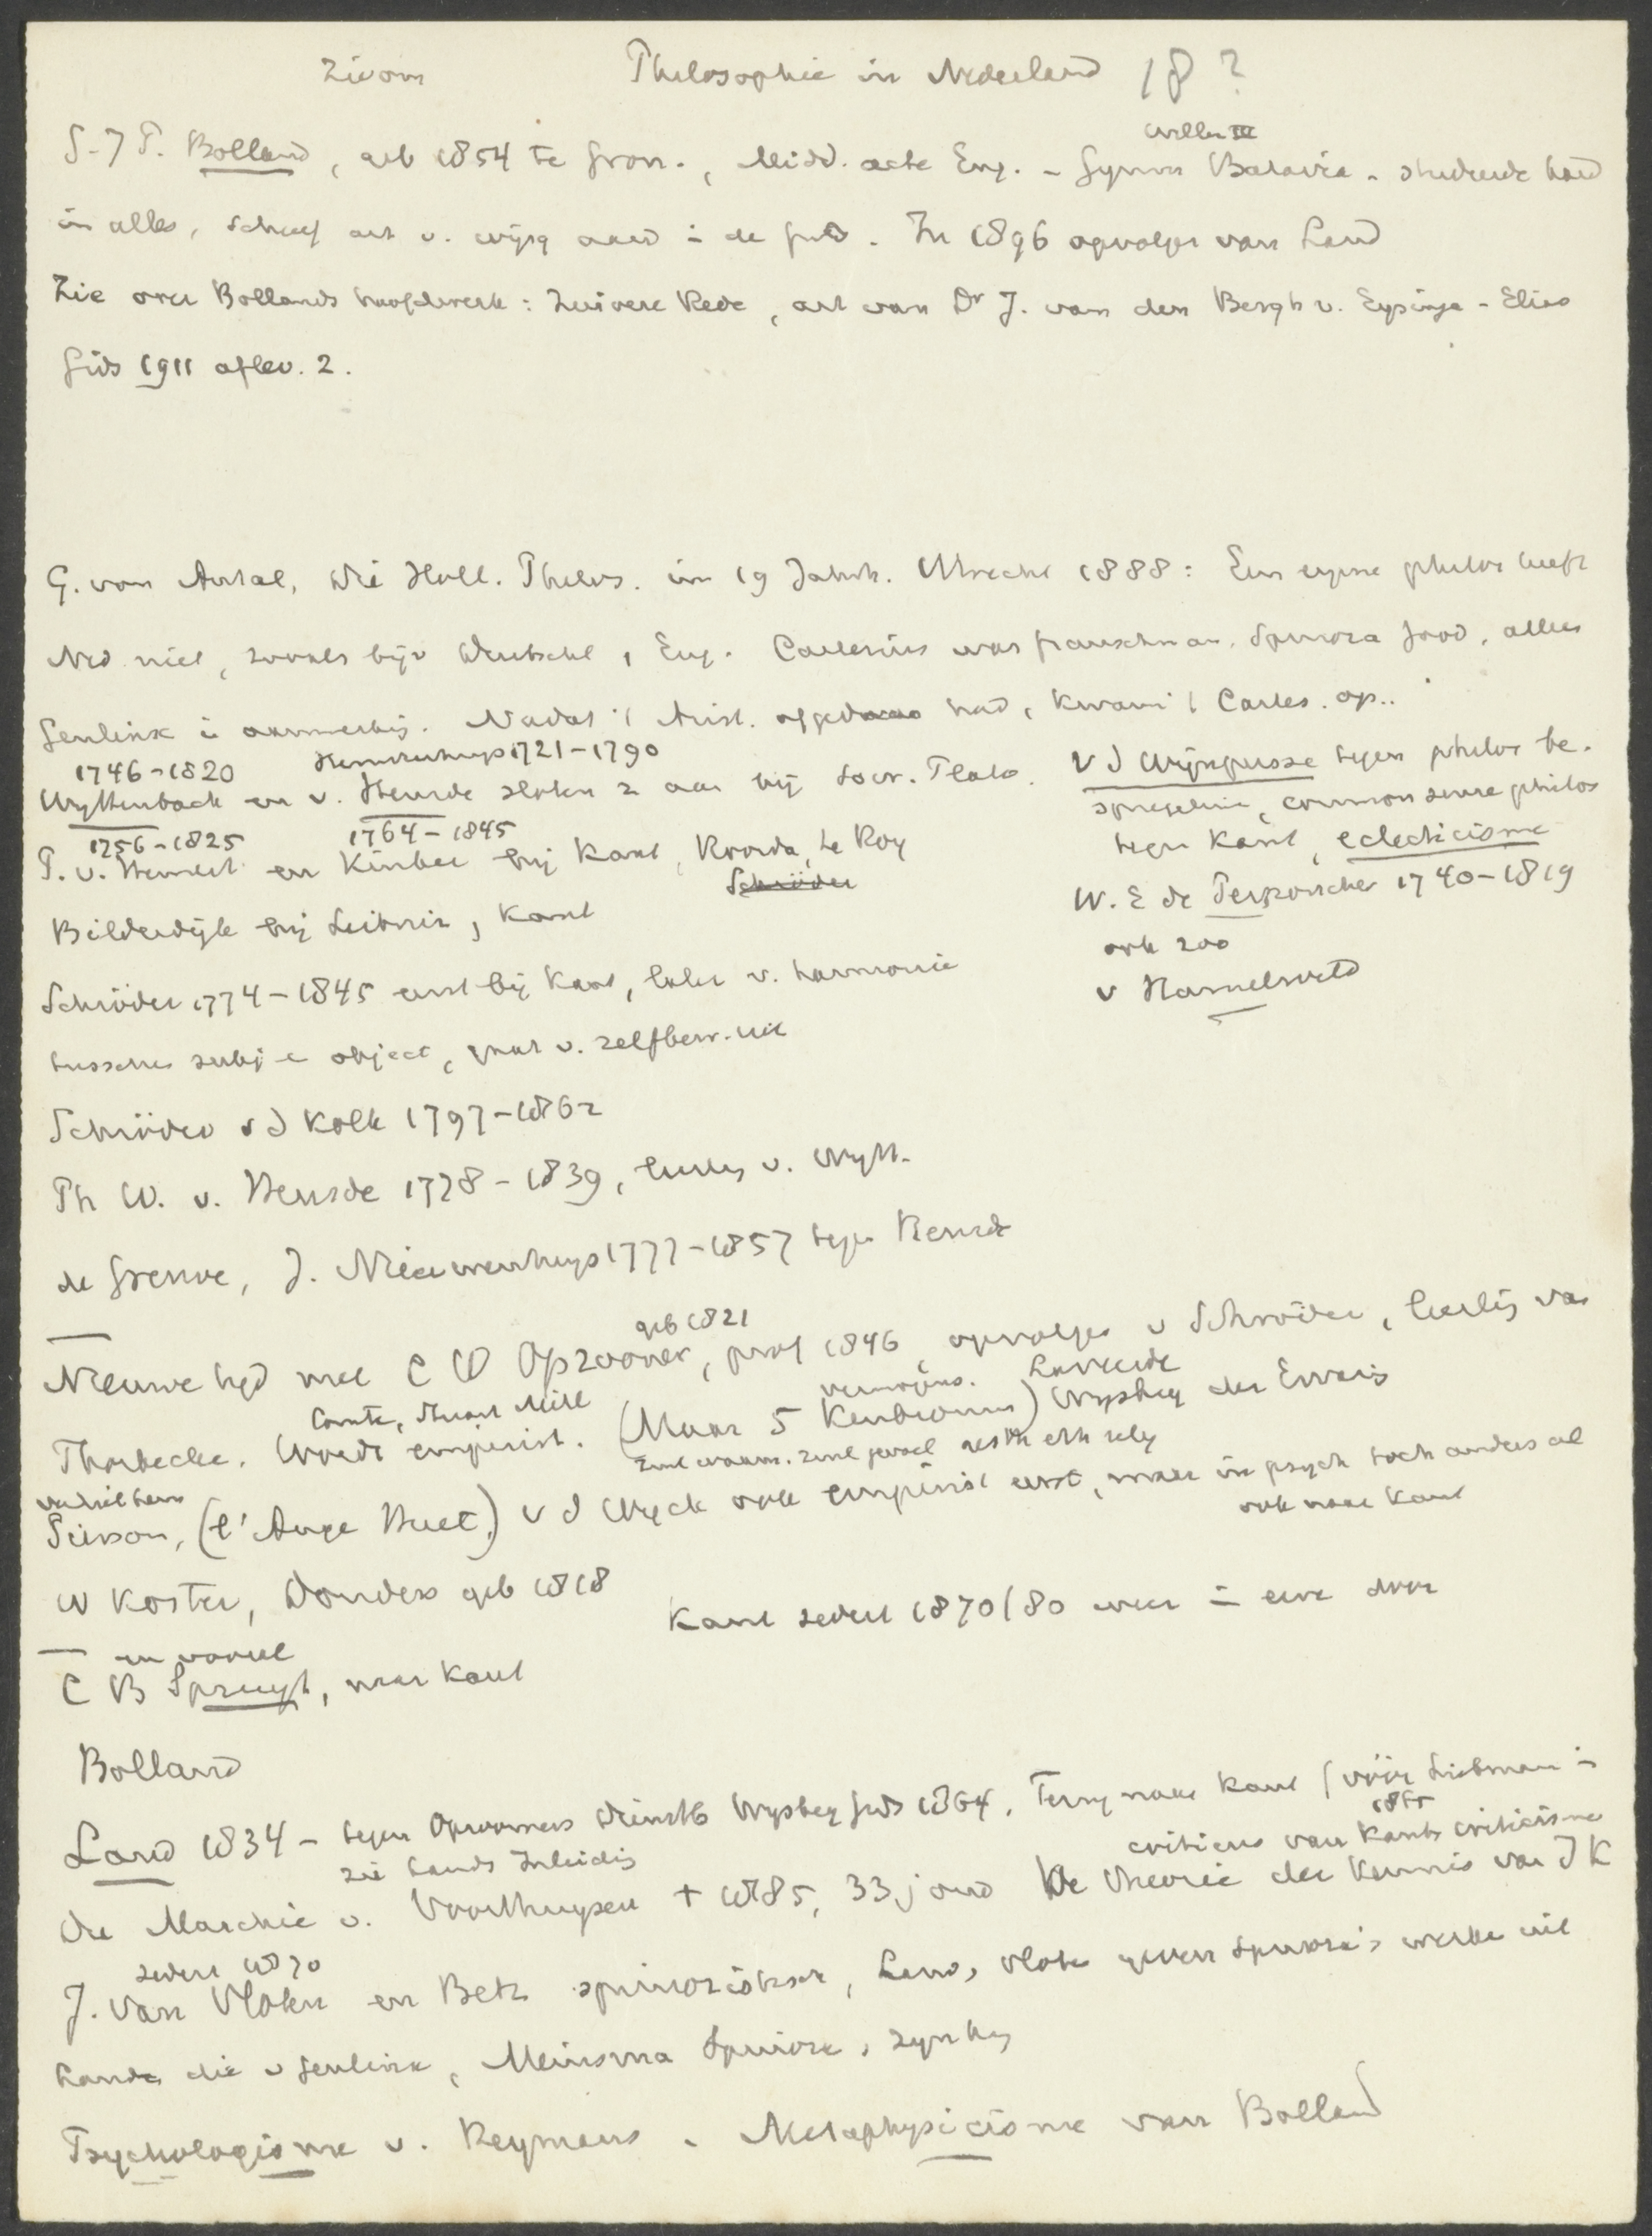 Zie om Philosophie in Nederland 18 ?
Willem III
G. J P. Bolland, geb 1854 te Gron., Midd. acte Eng. - Gymn Batavia - studeerde hard
in alles, schreef art v. wijsg aard in de Gids. In 1896 opvolger van Land
Zie over Bollands hoofdwerk: Zuivere Rede, art van Dr J. van den Bergh v. Eysinga - Elias
Gids 1911 aflev. 2.
G. von Antal, Die Holl. Philos. im 19 Jahrh. Utrecht 1888: Een eigene philos heeft
Ned niet, zooals bijv Deutschl, Eng. Cartesius was franschman, Spinoza Jood, alleen
Geulinx is aanmerkelijk. Nadat 't Arist. afgedaan had, kwam 't Cartes. op..
1746-1820 Hemsterhuys 1721-1790
Wyttenbach en v. Heusde sloten z aan bij Socr. Plato.
1756-1825 1764-1845
P. v. Hemert en Kinker bij Kant, Roorda, le Roy
Schröder
Bilderdijk bij Leibniz, Kant
v d Wijnpersse tegen philos be-
spiegeling, common sense philos
tegen Kant, eclecticisme
W. E de Perponcher 1740-1819
ook zoo
v Hamelsveld
Schröder 1774-1845 eerst bij Kant, later v. harmonie
tusschen subj en object, gaat v. zelfbew. uit
Schröder v d Kolk 1797-1862
Ph W. v. Heusde 1778-1839, leerling v. Wytt.
de Greuve, J. Nieuwenhuys 1777-1857 tegen Heusde
geb 1821
Nieuwe tijd met C W Opzoomer, prof 1846, opvolger v Schröder, leerling van
Comte, Stuart Mill vermogens. Zintuigl
Thorbecke. Wordt empirist. (Maar 5 Kenbronnen) Wijsbeg der Ervaring
zinl waarn. zinl gevoel aesth eth relig
Pierson, (l'Ange Huet) v d Wyck ook empirist eerst, maar in psych toch anders al
ook naar Kant
W Koster, Donders geb 1818
Kant sedert 1870/80 weer in eere door
en vooral
C B Spruyt, naar Kant
Bolland
Land 1834 - tegen Opzoomers Wijsbeg Gids 1864. Terug naar Kant (vóór Liebmann in
1865
zie Lands Inleiding criticus van Kants criticisme
Du Marchie v. Voorthuysen † 1885, 33 j oud De theorie der kennis van I K
sedert 1870
J. van Vloten en Betz spinozistisch, Land, Vloten geven Spinoza's werke uit
Land die v Geulinx, Meinsma Spinoza, zijn kring
Psychologisme v. Heymans. Metaphysicisme van Bolland